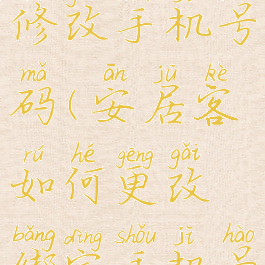 修改手机号
mǎ ān jū kè
码(安居客
rú hé gēng gǎi
如何更改
bǎng dìng shǒu jī hào
绑定手机号